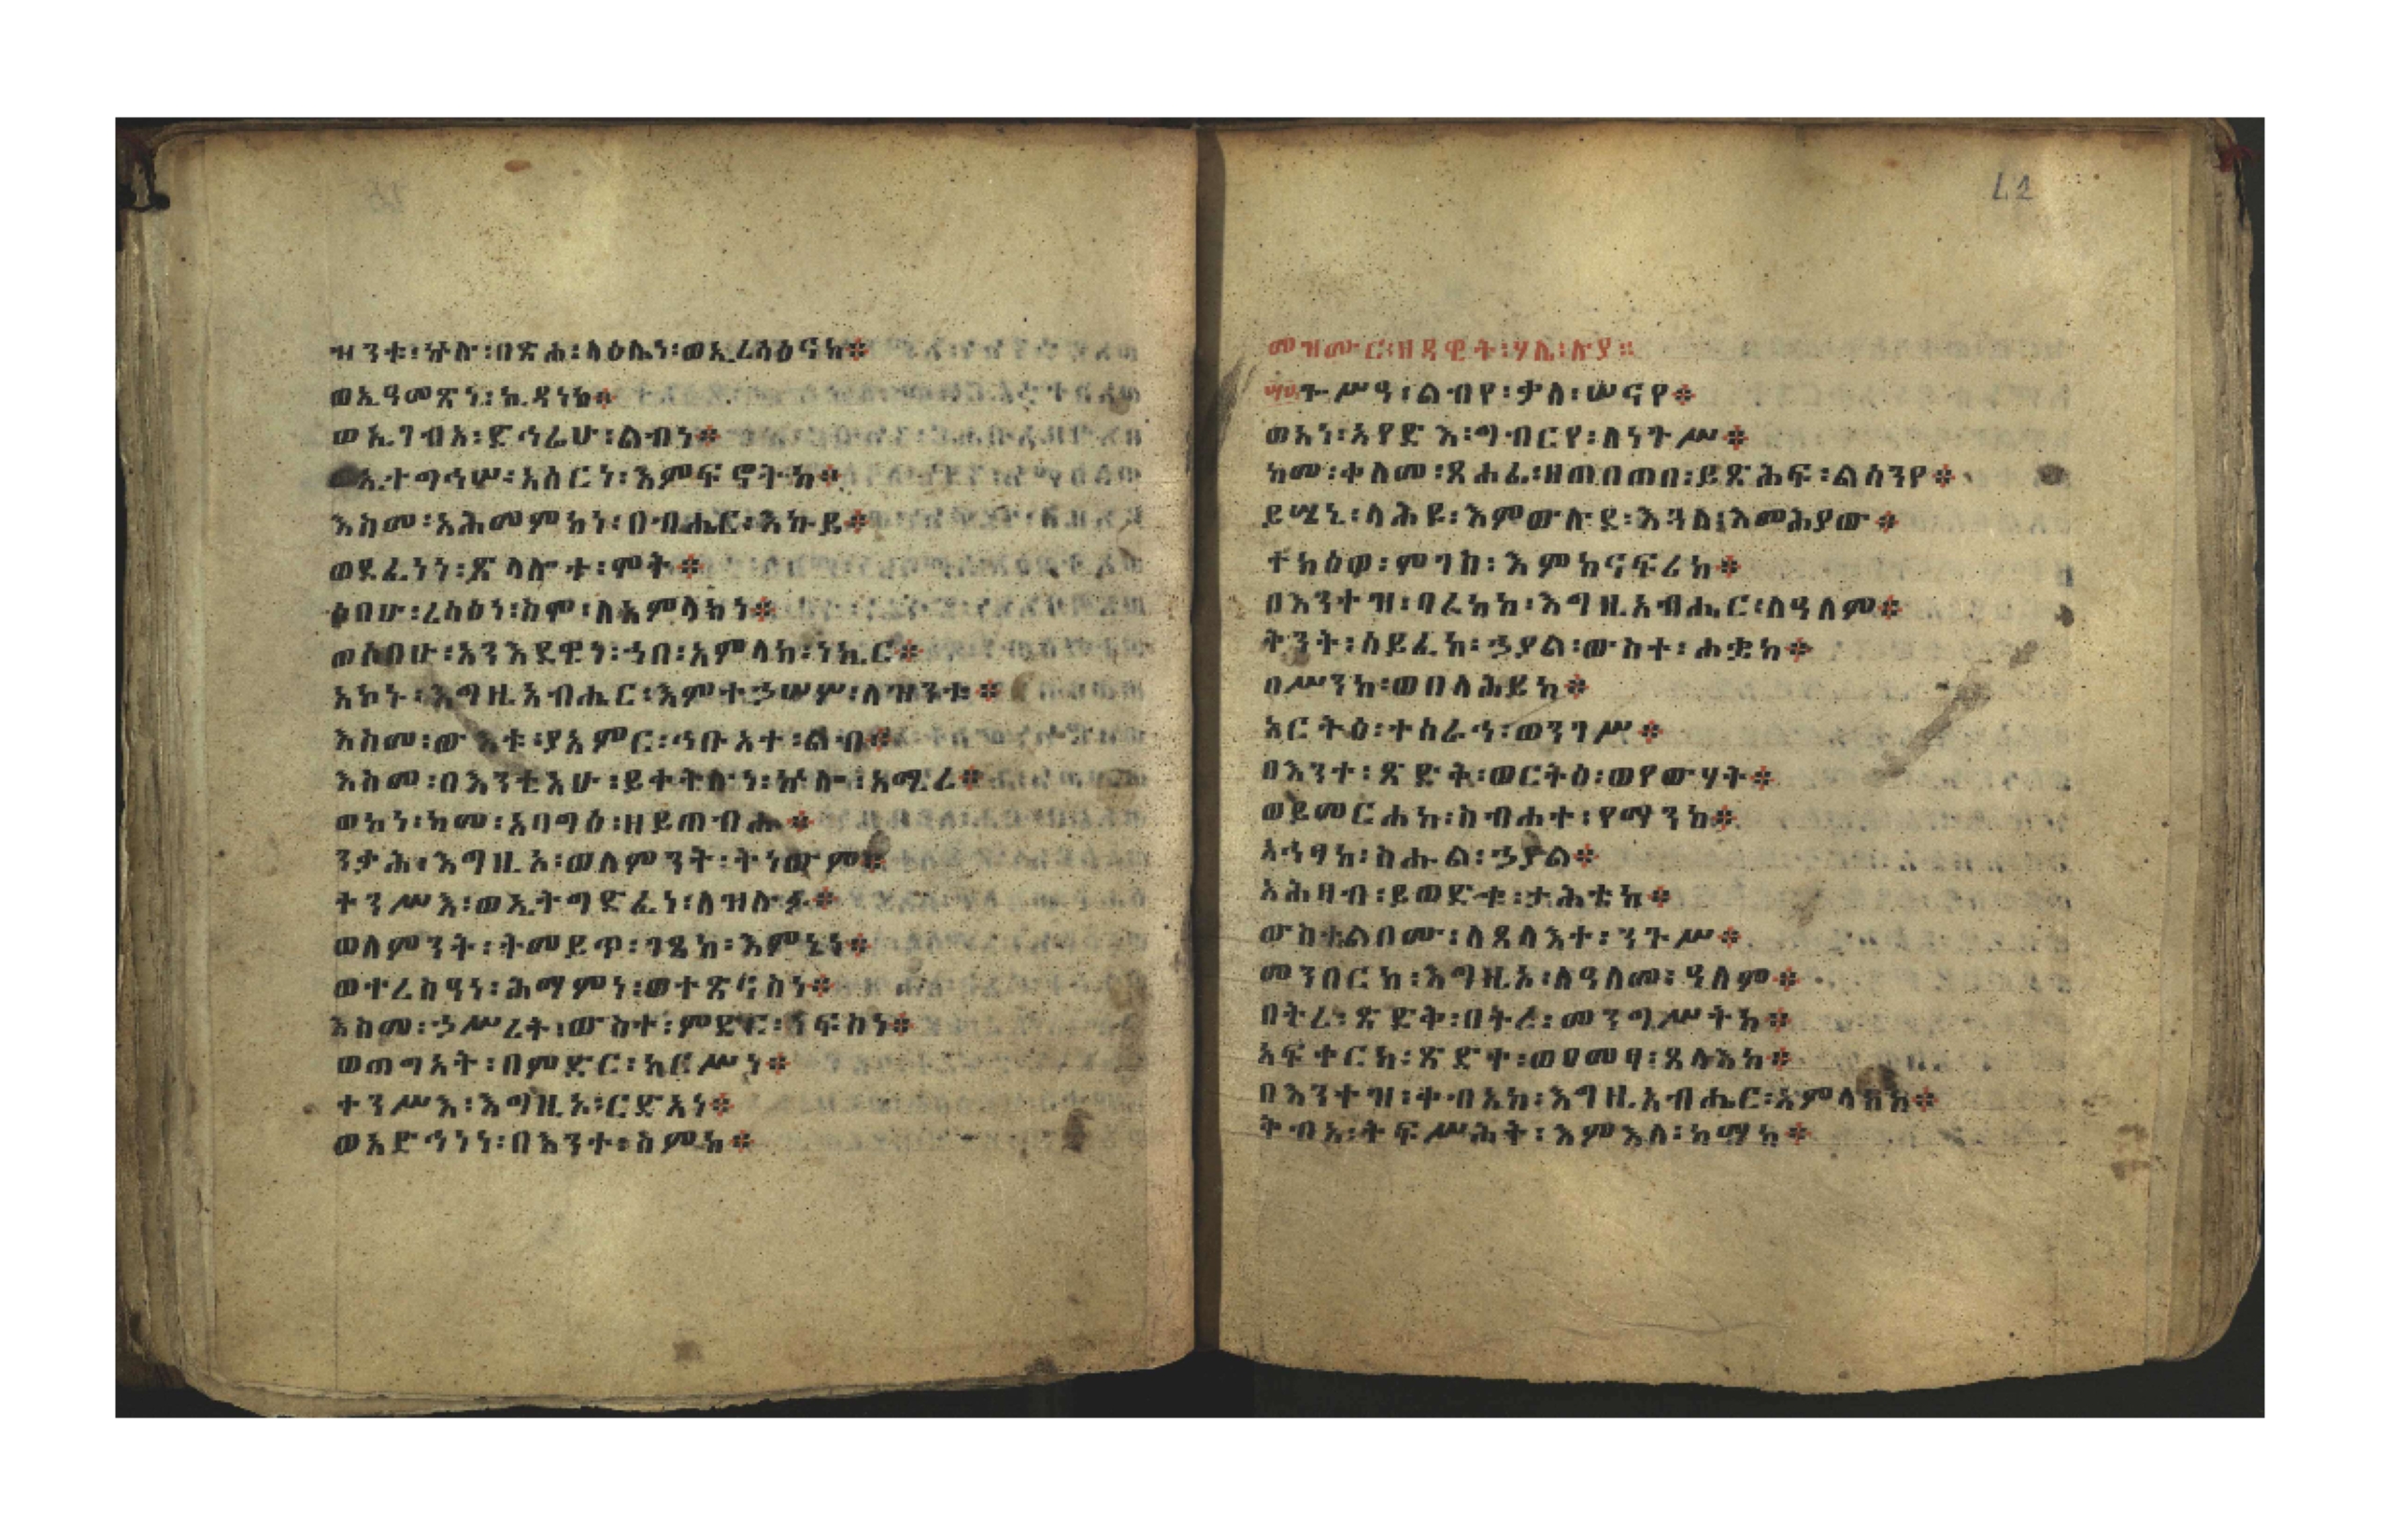 ዝንቱ፡ኵሉ፡በጽሐ፡ላዕሌነ፡ወኢረሳዕናከ።
ወኢዓመፅነ፡ኪዳነከ።
ወኢገብአ፡ድኅሬሁ፡ልብነ።
ወኢተግኅሠ፡አሰርነ፡እምፍኖትከ።
እስመ፡አሕመምከነ፡በብሔር፡እኩይ።
ወደፈነነ፡ጽላሎተ፡ሞት።
ሶበሁ፡ረሳዕነ፡ስሞ፡ለአምላክነ።
ወሶበሁ፡አንእደዊነ፡ኀበ፡አምላክ፡ነኪር።
አኮኑ፡እግዚአብሔር፡እምተኃሠሦ፡ለዝንቱ።
እስመ፡ውእቱ፡ያአምር፡ኅቡአተ፡ልብ።
እስመ፡በእንቲአሁ፡ይቀትሉነ፡ኵሎ፡አሚረ።
ወኮነ፡ከመ፡አባግዕ፡ዘይጠብሑ።
ንቃሕ፡እግዚኦ፡ወለምንት፡ትነውም።
ተንሥእ፡ወኢትግድፈነ፡ለዝሉፉ።
ወለምንት፡ትመይጥ፡ገጸከ፡እምኔነ።
ወትረስዓነ፡ሕማምነ፡ወተጽናስነ።
እስመ፡ኃሥረት፡ውስተ፡ምድር፡ነፍስነ።
ወጠግአት፡በምድር፡ከርሥነ።
ተንሥእ፡እግዚኦ፡ርድአነ።
ወአድኅነነ፡በእንተ፡ስምከ።
42
መዝሙር፡ዘዳዊት፡ሃሌ፡ሉያ።
ጐሥዓ፡ልብየ፡ቃለ፡ሠናየ።
ወአነ፡አየድእ፡ግብርየ፡ለነጉሥ።
ከመ፡ቀለመ፡ጸሐፊ፡ዘጠበጠበ፡ይጽሕፍ፡ልሳንየ።
ይሤኒ፡ላሕዩ፡እምውሉደ፡እጓለ፡እመሕያው።
ተክዕወ፡ሞገስ፡እምከናፍሪከ።
በእንተዝ፡ባረከከ፡እግዚአብሔር፡ለዓለም።
ቅንት፡ሰይፈከ፡ኃያል፡ውስተ፡ሐቌከ።
በሥንከ፡ወበላሕይከ።
አርትዕ፡ተሰራኅ፡ወንገሥ።
በእንተ፡ጽድቅ፡ወርትዕ፡ወየውሃት።
ወይመርሐከ፡ስብሐተ፡የማንከ።
አሕፃከ፡ስሑል፡ኃያል።
አሕዛብ፡ይወድቁ፡ታሕቴከ።
ውስተልበሙ፡ለጸላእተ፡ንጉሥ።
መንበርከ፡እግዚኦ፡ለዓለመ፡ዓለም።
በትረ፡ጽድቅ፡በትረ፡መንግሥትከ።
አፍቀርከ፡ጽድቀ፡ወዐመፃ፡ጸላእከ።
በእንተዝ፡ቀብአከ፡እግዚአብሔር፡አምላክከ።
ቅብአ፡ትፍሥሕት፡እምእለ፡ከማከ።